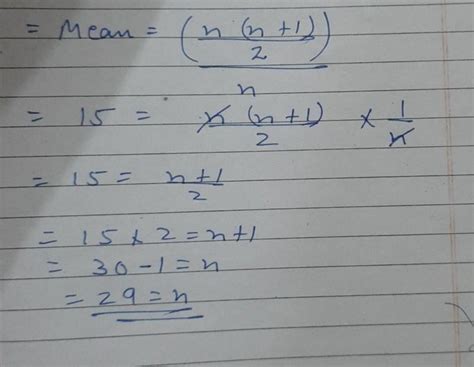 = Mean = (n (n+1) / 2) / n
= 15 = n (n+1) / 2 × 1/n
= 15 = n+1 / 2
= 15 × 2 = n+1
= 30 - 1 = n
= 29 = n